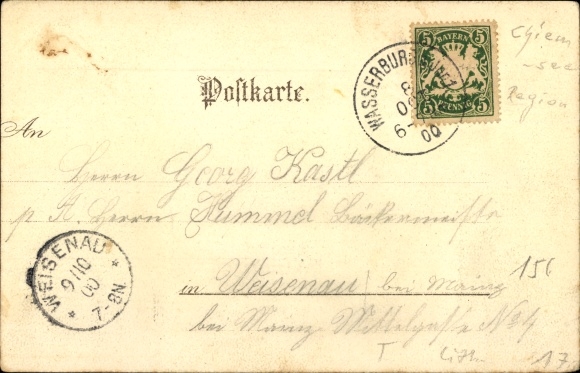 5 BAYERN 5
5 PFENNIG 5
WASSERBURG
8
OCT
6-
00
Chiem
-see
Region
Postkarte.
An
Herrn Georg Kastl
p. A. Herrn Hummel Bäckermeister
in Weisenau bei Mainz
bei Mainz Mittelgasse No 4
WEISENAU
9/10
00
7-8N.
156
T Lith.
17